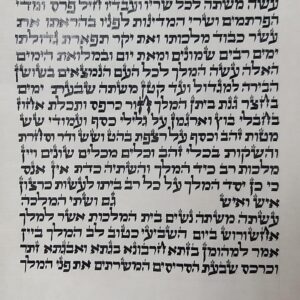 עשה משתה לכל שריו ועבדיו חיל פרס ומדי
הפרתמים ושרי המדינות לפניו בהראתו את
עשר כבוד מלכותו ואת יקר תפארת גדולתו
ימים רבים שמונים ומאת יום ובמלואת הימים
האלה עשה המלך לכל העם הנמצאים בשושן
הבירה למגדול ועד קטן משתה שבעת ימים
בחצר גנת ביתן המלך חור כרפס ותכלת אחוז
בחבלי בוץ וארגמן על גלילי כסף ועמודי שש
מטות זהב וכסף על רצפת בהט ושש ודר וסחרת
והשקות בכלי זהב וכלים מכלים שונים ויין
מלכות רב כיד המלך והשתיה כדת אין אנס
כי כן יסד המלך על כל רב ביתו לעשות כרצון
איש ואיש גם ושתי המלכה
עשתה משתה נשים בית המלכות אשר למלך
אחשורוש ביום השביעי כטוב לב המלך ביין
אמר למהומן בזתא חרבונא בגתא ואבגתא זתר
וכרכס שבעת הסריסים המשרתים את פני המלך